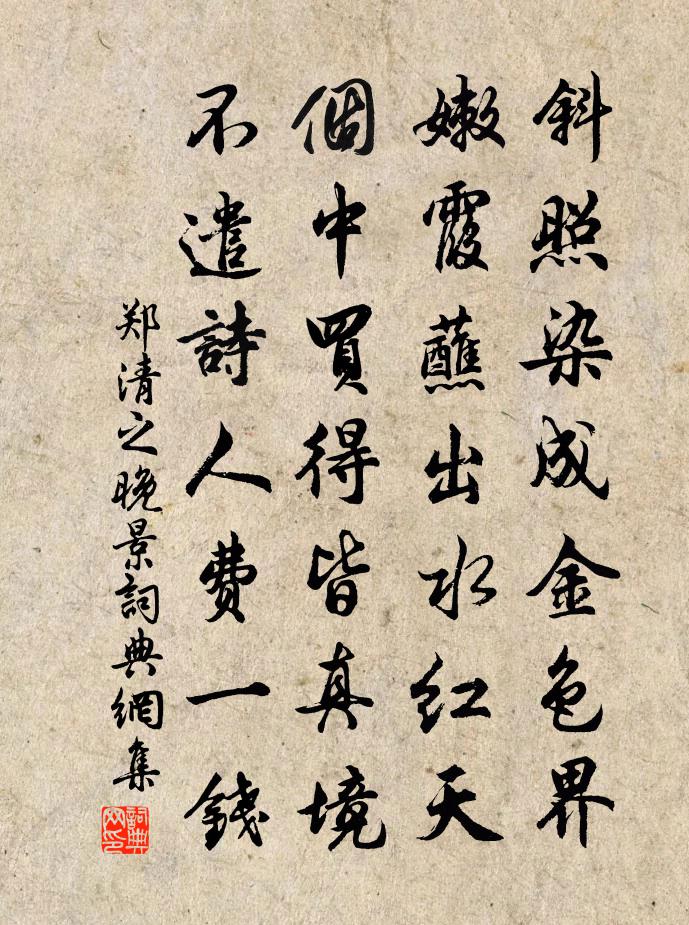 斜照染成金色界
嫩霞蘸出水红天
個中買得皆真境
不遣詩人費一錢
郑清之晚景詞典網集
詞典网印